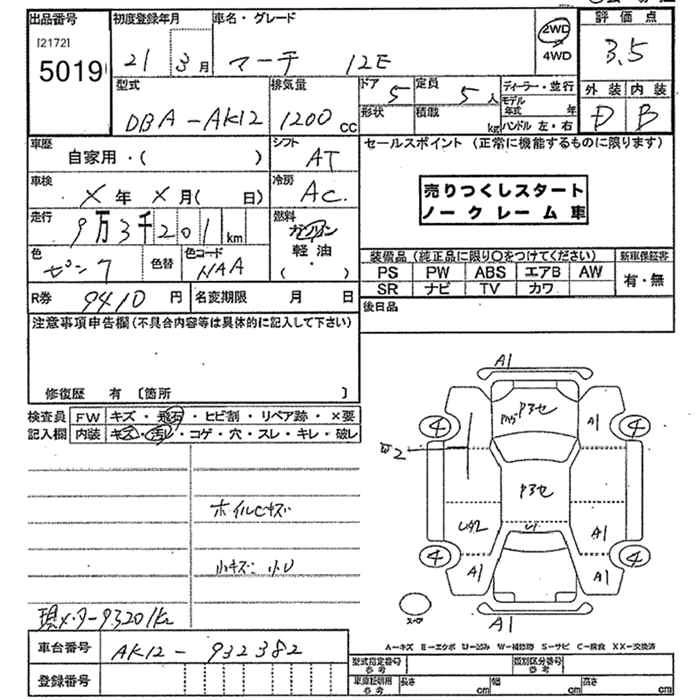 出品番号 初度登録年月 車名・グレード 評価点
[2172]
5019 21 3月 マーチ 12E 2WD 4WD 3.5
型式 排気量 ドア 5 定員 5人 ディーラー・並行 外装 内装
DBA-AK12 1200cc 形状 積載 kg モデル年式 年 ハンドル 左・右 D B
車歴 シフト セールスポイント (正常に機能するものに限ります)
自家用・( ) AT
車検 冷房
X年X月( 日) AC.
売りつくしスタート
ノークレーム車
走行 燃料
9万3千201km ガソリン
軽油
・( )
色 色替 色コード
ピンク NAA
装備品(純正品に限り〇をつけてください) 新車保証書
PS PW ABS エアB AW 有・無
SR ナビ TV カワ
R券 9410円 名変期限 月 日
後日品
注意事項申告欄(不具合内容等は具体的に記入して下さい)
修復歴 有 〔箇所 〕
検査員 FW キズ・飛石・ヒビ割・リペア跡・×要
記入欄 内装 キズ・汚レ・コゲ・穴・スレ・キレ・破レ
A1
P3セ
A1
4 4
P3セ
U2
A1
4 4
A1 A1
スペア
A1
ホイルCキズ
小キズ 小U
現メーター93201km
車台番号 AK12-932382
登録番号
A-キズ E-エクボ U-凹み W-補修跡 S-サビ C-腐食 XX-交換済
型式指定番号 参考 類別区分番号 参考
車庫証明用 参考 長さ cm 幅 cm 高さ cm